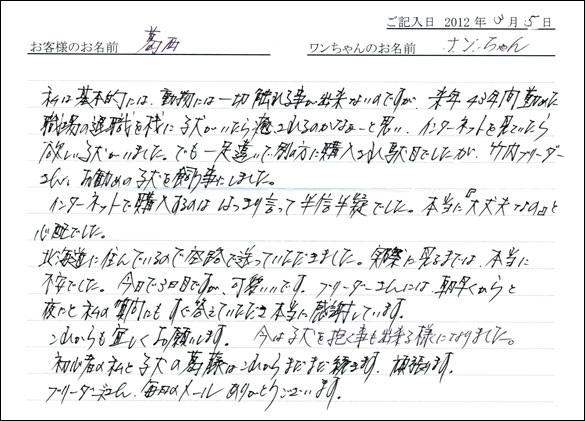 ご記入日 2012年 3月 5日
お客様のお名前 葛西 ワンちゃんのお名前 ナンちゃん
私は基本的には、動物には一切触れる事が出来ないのですが、来年43年間勤めた
職場の退職を機に子犬がいたら癒されるのかなぁーと思い、インターネットを見ていたら
欲しい子犬がいました。でも一足違いで別の方に購入され駄目でしたが、竹内ブリーダー
さん、お勧めの子犬を飼う事にしました。
インターネットで購入するのは はっきり言って半信半疑でした。本当に『大丈夫なの』と
心配でした。
北海道に住んでいるので空路で送っていただきました。実際に見るまでは、本当に
不安でした。今日で3日目ですが、可愛いです。ブリーダーさんには、朝早くからと
夜にと私の質問にもすぐ答えていただき本当に感謝しています。
これからも宜しくお願いします。 今は子犬を抱く事も出来る様になりました。
初心者の私と子犬の葛藤はこれからまだまだ続きます。頑張ります。
ブリーダーさん、毎日のメールありがとうございます。